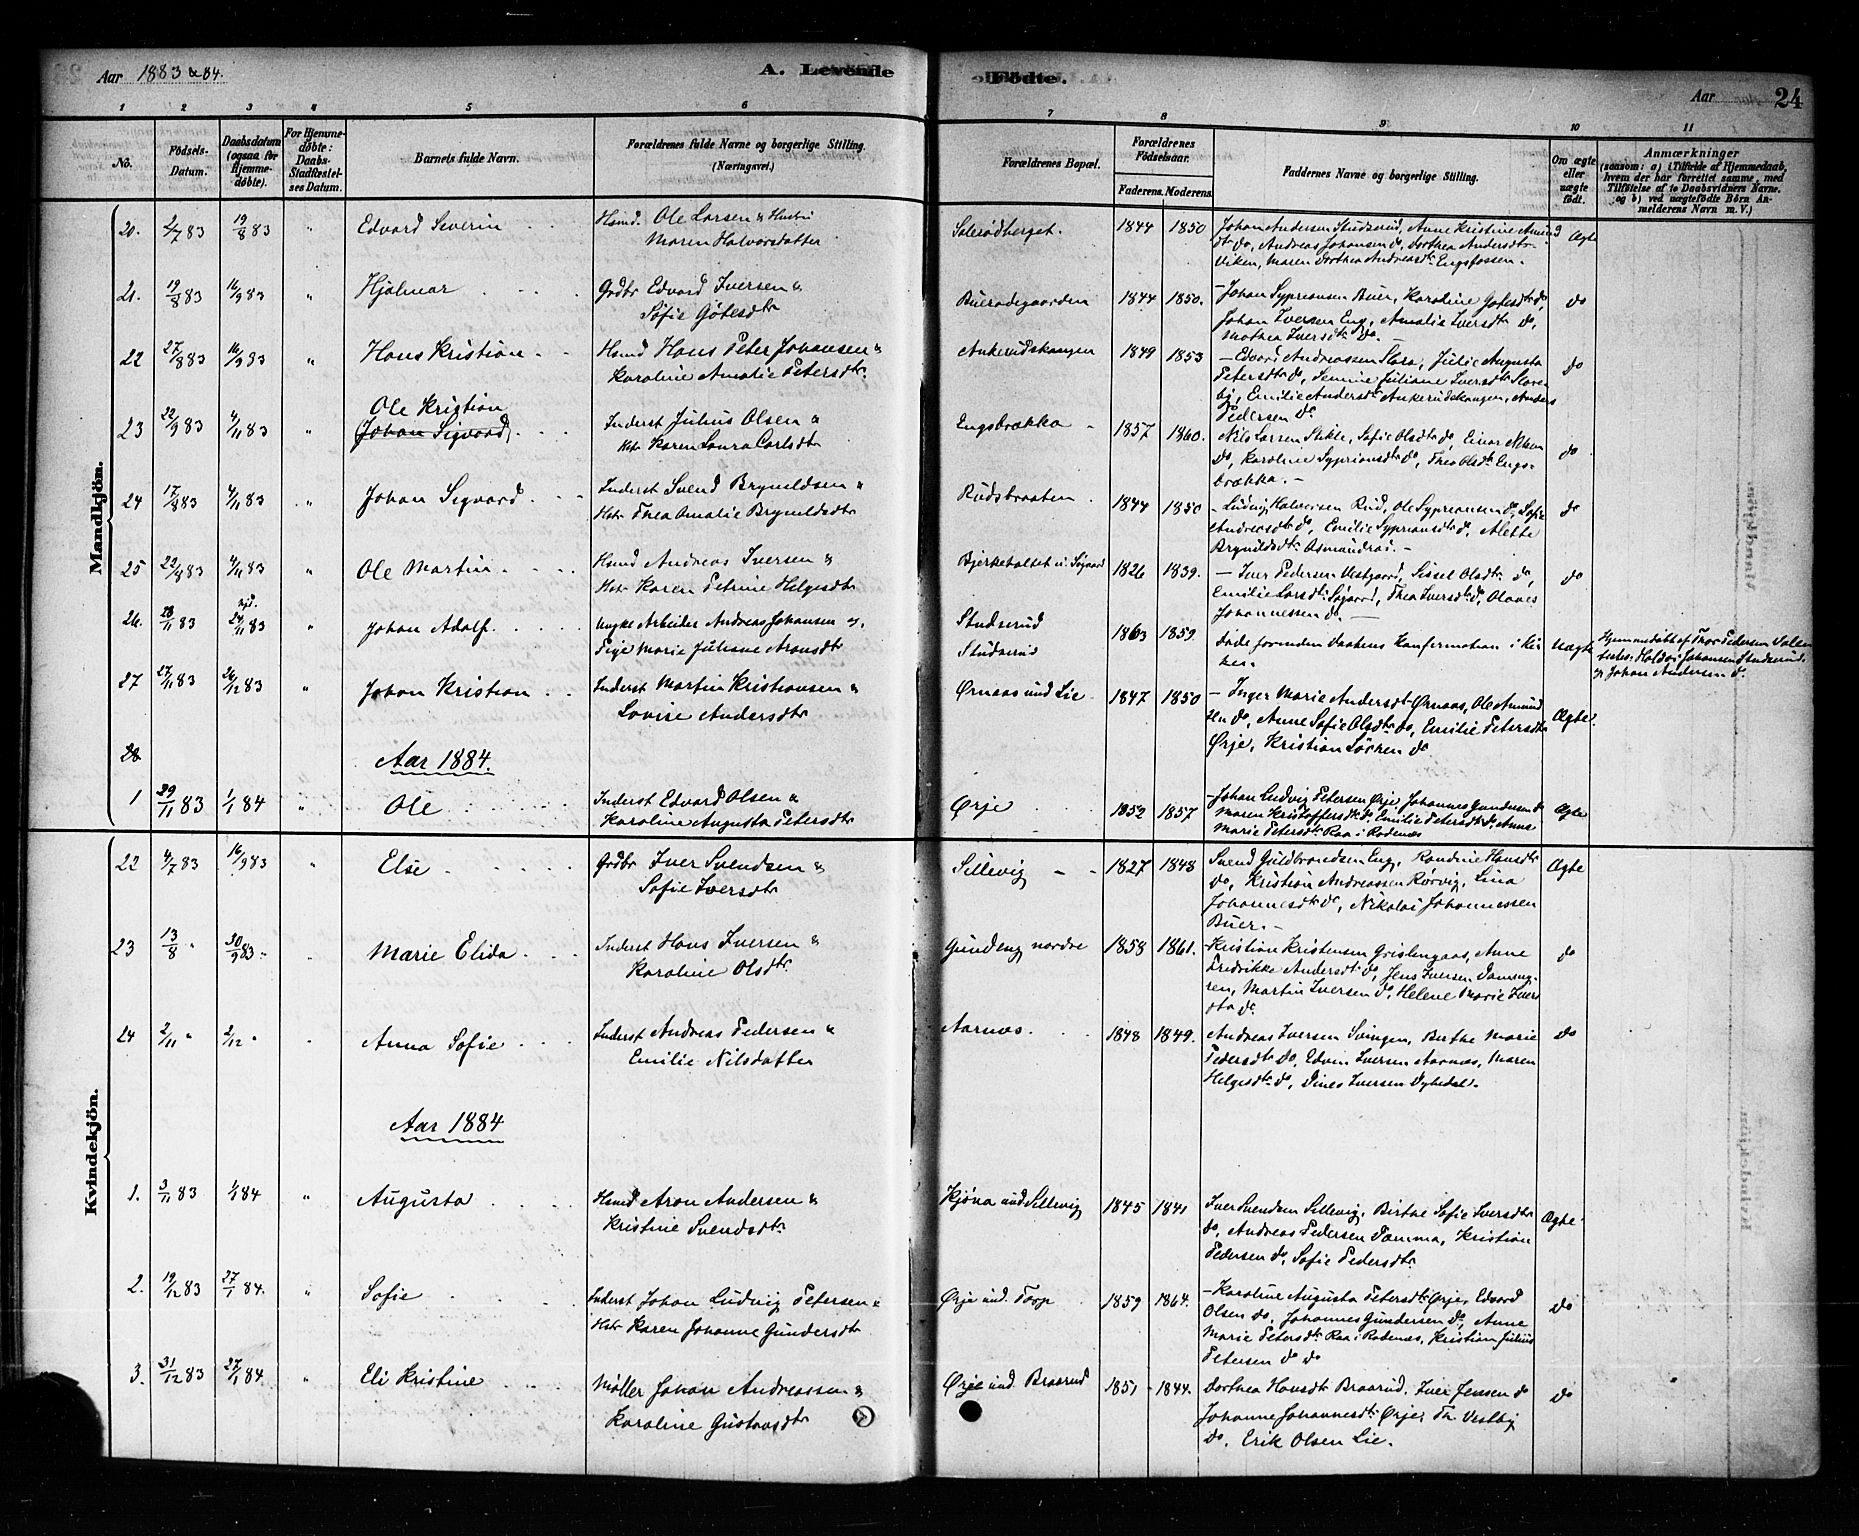 Aar 1883 & 84.
A. Levende Fødte.
Aar 24
1 2 3 4 5 6 7 8 9 10 11
No.
Fødsels-Datum.
Daabsdatum (ogsaa for Hjemmedøbte).
For Hjemmedøbte: Daabs-Stadfæstelses Datum.
Barnets fulde Navn.
Forældrenes fulde Navne og borgerlige Stilling. (Næringsvei.)
Forældrenes Bopæl.
Forældrenes Fødselsaar.
Faderens. Moderens.
Faddernes Navne og borgerlige Stilling.
Om ægte eller uægte født.
Anmærkninger
(saasom: a) i Tilfælde af Hjemmedaab, hvem der har forrettet samme, med Tilføielse af to Daabsvidners Navne. og b) ved uægtefødte Børn Anmelderens Navn m. V.)
Mandkjön.
20. 2/7 83 19/8 83 " Edvard Severin Husmd. Ole Larsen & Hustru
Maren Halvorsdatter
Solerødberget. 1844 1850 Johan Andersen Studserud, Anne Kristine Amund
dtr do, Andreas Johansen do, Dorthea Andersdtr
Viken, Maren Dorthea Andreasdtr Engsfossen. Ægte
21. 19/8 83 16/9 83 " Hjalmar Grdbr Edvard Iversen &
Sofie Gøtesdtr
Buerødegaarden 1844 1850. Johan Syprionsen Buer, Karoline Gøtesdtr do,
Johan Iversen Eng, Amalie Iversdtr do,
Mathea Iversdtr do. do
22 27/8 83 16/9 83 " Hans Kristian Husmd Hans Peter Johansen &
Karoline Amalie Petersdtr.
Ankerudskangen 1849 1853 Edvard Andreassen Slora, Julie Augusta
Petersdtr do, Semine Juliane Iversdtr Slore-
by, Emilie Andersdtr Ankerudskangen, Anders
Pedersen do do
23 22/9 83 4/11 83 " Ole Kristian
Johan Sigvard Inderst Julius Olsen &
Hstr Karen Laura Carlsdtr
Engsbrækka 1857 1860. Nils Larsen Stikle, Sofie Olsdtr do, Einar Nilsen
do, Karoline Syprionsdtr do, Thea Olsdtr Engs-
brækka. do
24 17/8 83 4/11 83 " Johan Sigvard Inderst Svend Bryneldsen &
Hstr Thea Amalie Bryneldsdtr
Rudsbraaten 1844 1850 Ludvig Halvorsen Rud, Ole Syprionsen do, Sofie
Andreasdtr do, Emilie Syprionsdtr do, Alette
Bryneldsdtr Osmundrøi. do
25 22/8 83 4/11 83 " Ole Martin Husmd Andreas Iversen &
Hstr Karen Petrine Helgesdtr
Bjerkeholtet u. Søgaard 1826 1839. Iver Pedersen Vestgaard, Sissel Olsdtr do,
Emilie Larsdtr Søgaard, Thea Iversdtr do, Olaves
Johannessen do. do
26. 28/11 83 hjd. 29/11 83 " Johan Adolf. Ungke Arbeider Andreas Johansen og
Pige Marie Juliane Aronsdtr
Studserud
Studserud
1863 1859. Døde forinden Daabens Konfermation i Kir
ken. Uægte Hjemmedøbt af Thor Pedersen
Johansen Studserud
og Johan Andersen do.
27 27/11 83 26/12 83 " Johan Kristian Inderst Martin Kristiansen &
Lovise Andersdtr
Ørnaas und Lie 1847 1850 Inger Marie Andersdtr Ørnaas, Ole Amund
sen do, Anne Sofie Olsdtr do, Emilie Petersdtr
Ørje, Kristian Sørren do Ægte.
28
Aar 1884.
1 29/11 83 1/1 84 " Ole Inderst Edvard Olsen &
Karoline Augusta Petersdtr
Ørje 1852 1857 Johan Ludvig Petersen Ørje, Johannes Gundersen do
Maren Kristoffersdtr do, Emilie Petersdtr do, Anne
Marie Petersdtr Raa i Rødenæs Ægte
Kvindekjön.
22 4/7 83 16/9 83 " Else Grdbr Iver Svendsen &
Sofie Iversdtr
Sillevig 1827 1848 Svend Guldbrandsen Eng, Randine Hansdtr
do, Kristian Andreassen Rørvig, Lina
Johannesdtr do, Nikolai Johannessen
Buer. Ægte
23 13/8 " 30/9 83 " Marie Elida Inderst Hans Iversen &
Karoline Olsdtr.
Gundeng nordre 1858 1861. Kristian Kristensen Grislengaas, Anne
Fredrikke Andersdtr do, Jens Iversen Dammy-
ren, Martin Iversen do, Helene Marie Ivers
dtr do. do
24 2/11 " 2/12 " " Anna Sofie Inderst Andreas Pedersen &
Emilie Nilsdatter
Aarnæs. 1848 1849. Andreas Iversen Svingen, Berthe Marie
Pedersdtr do, Edvin Iversen Aarnæs, Maren
Helgesdtr do, Dines Iversen Dyhedal. do
Aar 1884
1. 3/11 83 1/1 84 " Augusta Husmd Aron Andersen &
Kristine Svendsdtr
Kjøna und Sillevig 1845 1841 Iver Svendsen Sillevig, Birthe Sofie Iversdtr
do, Andreas Pedersen Damma, Kristian
Pedersen do, Sofie Pedersdtr Ægte.
2. 19/12 83 27/1 84. " Sofie Inderst Johan Ludvig Petersen &
Hstr Karen Johanne Gundersdtr
Ørje und. Torp 1859 1864. Karoline Augusta Petersdtr Ørje, Edvard
Olsen do, Johannes Gundersen do, Anne
Marie Petersdtr Raa i Rødenæs, Kristian Julius
Petersen do do do
3. 31/12 83 27/1 84 " Eli Kristine Møller Johan Andreassen &
Karoline Gustavsdtr
Ørje und. Braarud 1851 1844. Dorthea Hansdtr Braarud, Iver Jensen do
Johanne Johannesdtr Ørje, Th. Vestby
do, Erik Olsen Lie. do